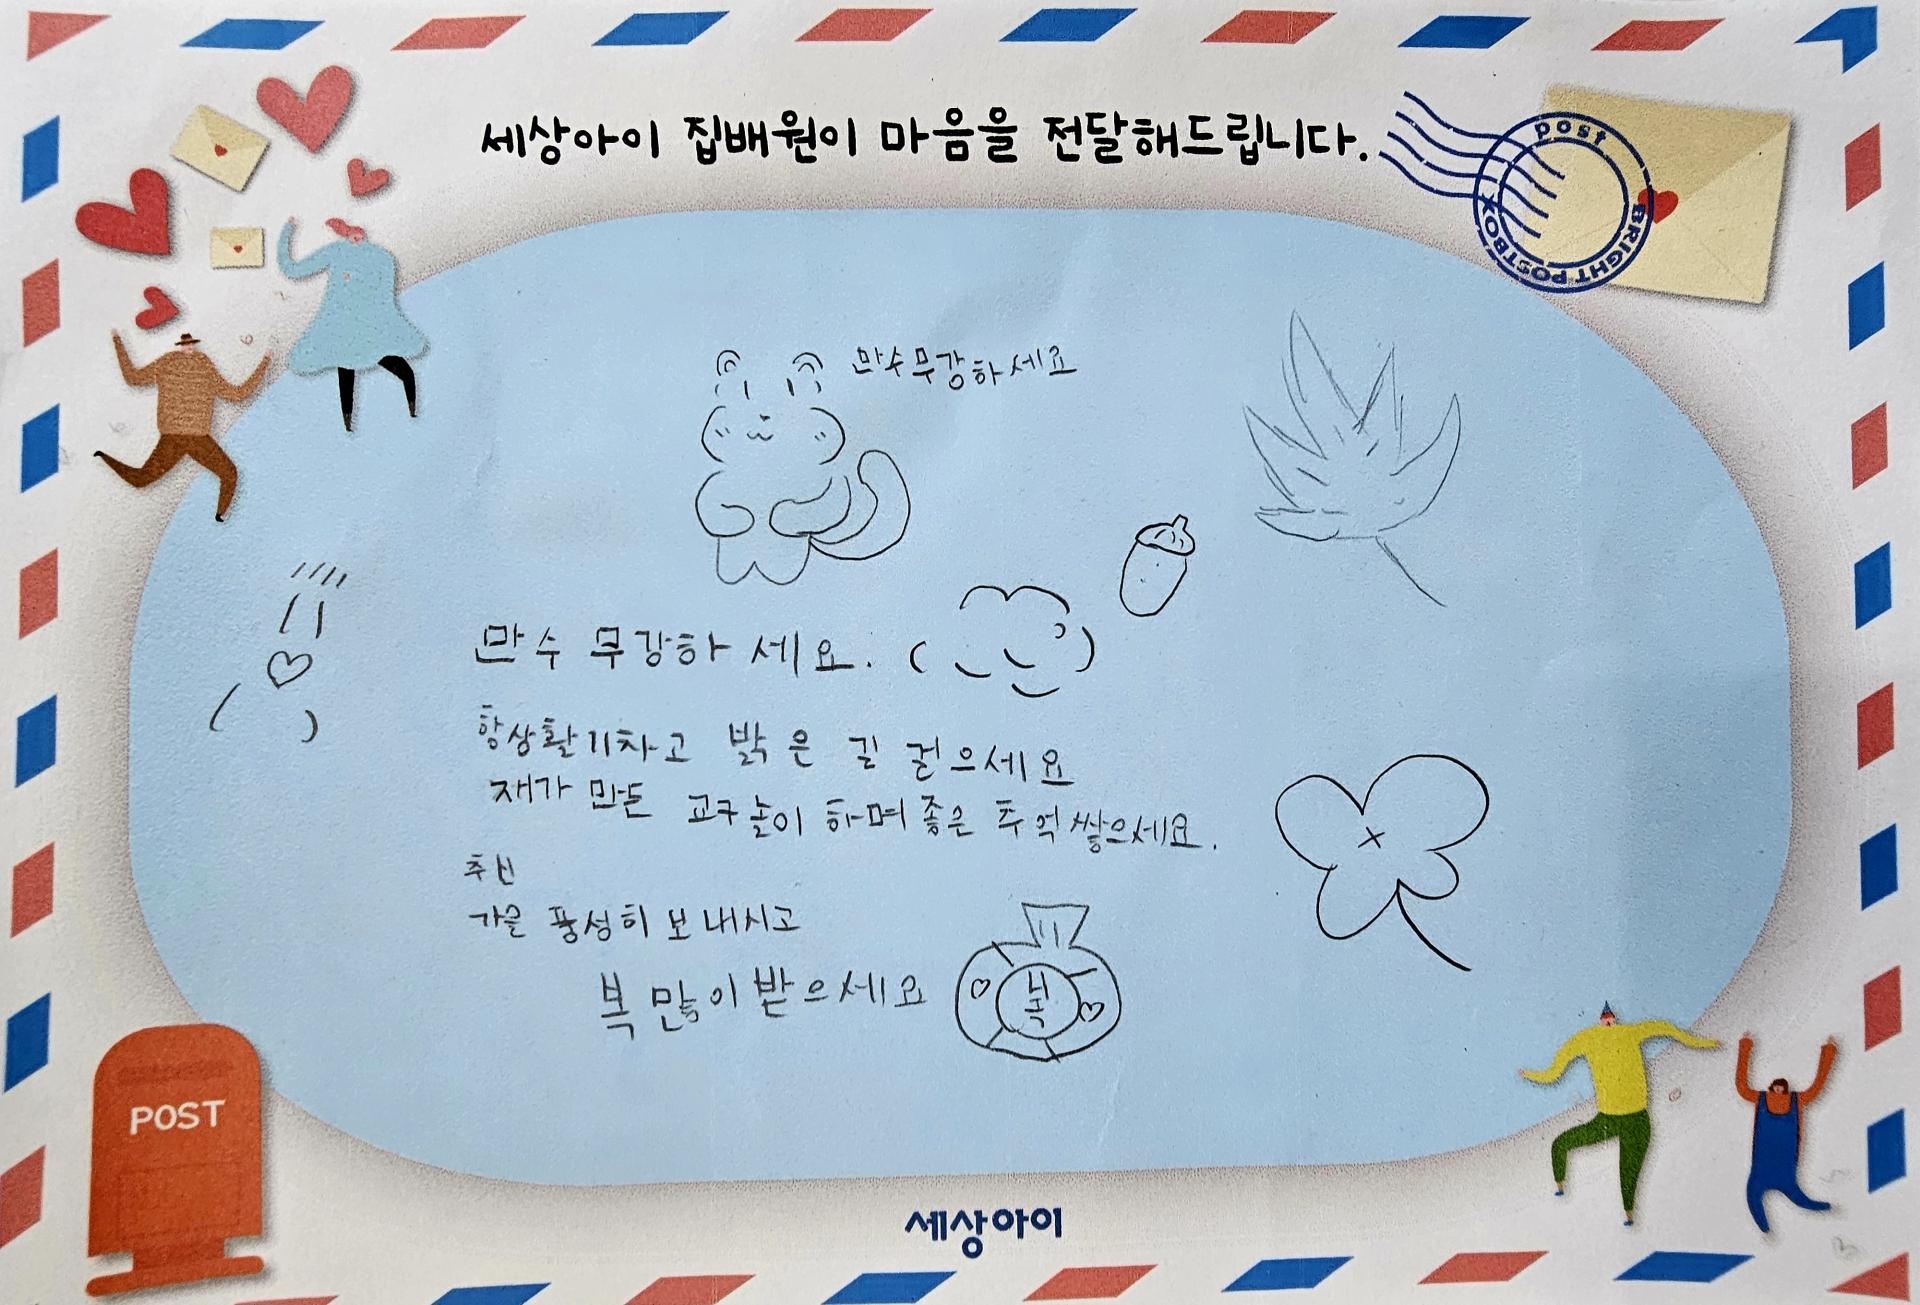 세상아이 집배원이 마음을 전달해드립니다.
post
BRIGHT POSTBOX
만수무강하세요
만수 무강하 세요.
항상활기차고 밝은 길 걷으세요
재가 만든 교구놀이 하며 좋은 추억 쌓으세요.
추신
가을 풍성히 보내시고
복 많이 받으세요
복
POST
세상아이